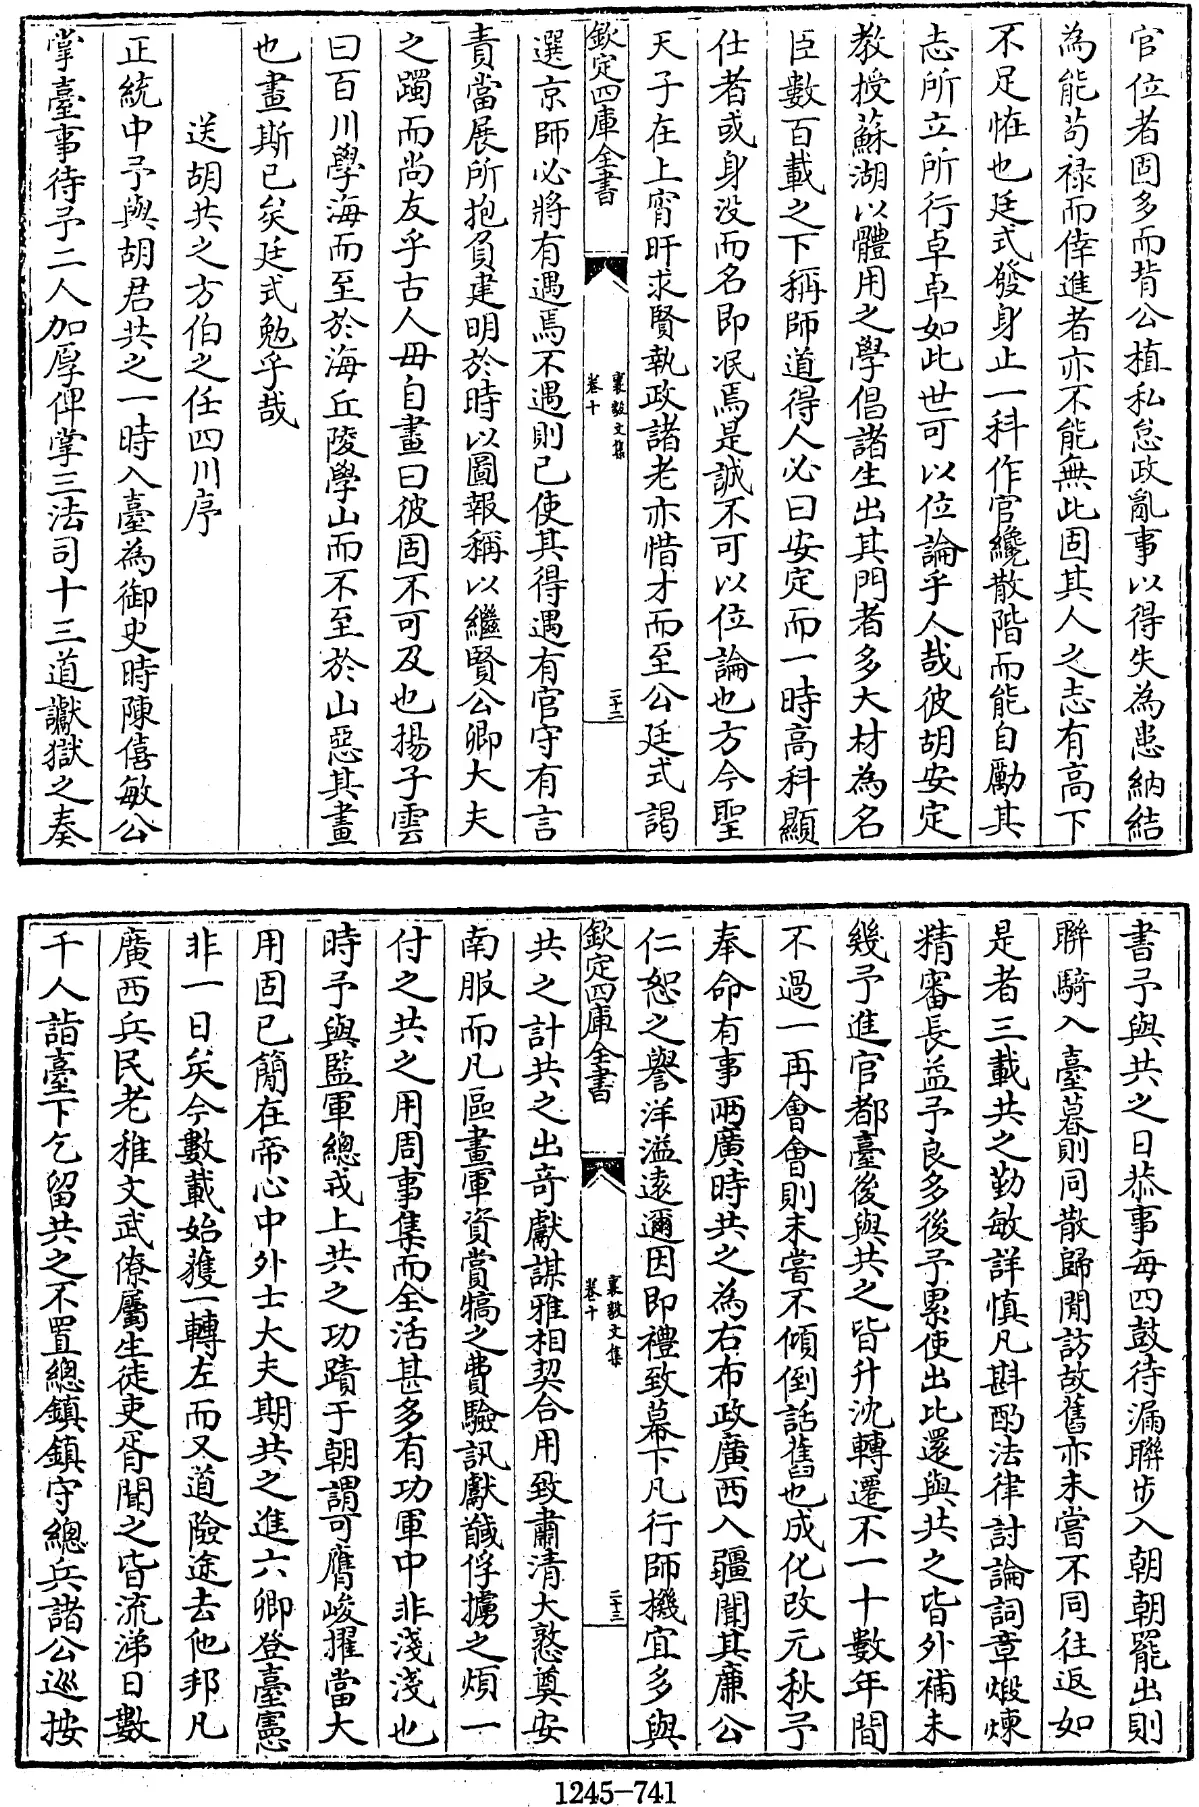 官位者固多而背公植私怠政亂事以得失為患納結
為能茍禄而倖進者亦不能無此固其人之志有高下
不足恠也廷式發身止一科作官纔散階而能自勵其
志所立所行卓卓如此世可以位論乎人哉彼胡安定
教授蘇湖以體用之學倡諸生出其門者多大材為名
臣數百載之下稱師道得人必曰安定而一時高科顯
仕者或身没而名即冺焉是誠不可以位論也方今聖
天子在上宵旰求賢執政諸老亦惜才而至公廷式謁
欽定四庫全書
襄毅文集
卷十
二十二
選京師必將有遇焉不遇則已使其得遇有官守有言
責當展所抱負建明於時以圖報稱以繼賢公卿大夫
之躅而尚友乎古人毋自畫曰彼固不可及也揚子雲
曰百川學海而至於海丘陵學山而不至於山惡其畫
也畫斯已矣廷式勉乎哉
送胡共之方伯之任四川序
正統中予與胡君共之一時入臺為御史時陳僖敏公
掌臺事待予二人加厚俾掌三法司十三道讞獄之奏
書予與共之日恭事每四鼓待漏聯步入朝朝罷出則
聯騎入臺暮則同散歸閒訪故舊亦未嘗不同往返如
是者三載共之勤敏詳慎凡斟酌法律討論詞章煅煉
精審長益予良多後予累使出比還與共之皆外補未
幾予進官都臺後與共之皆升沈轉遷不一十數年間
不過一再會會則未嘗不傾倒話舊也成化改元秋予
奉命有事兩廣時共之為右布政廣西入疆聞其廉公
仁恕之譽洋溢遠邇因即禮致幕下凡行師機宜多與
欽定四庫全書
襄毅文集
卷十
二十三
共之計共之出奇獻謀雅相契合用致肅清大憝奠安
南服而凡區畫軍資賞犒之費驗訊獻馘俘擄之煩一
付之共之用周事集而全活甚多有功軍中非淺淺也
時予與監軍總戎上共之功蹟于朝謂可膺峻擢當大
用固已簡在帝心中外士大夫期共之進六卿登臺憲
非一日矣今數載始獲一轉左而又道險途去他邦凡
廣西兵民老稚文武僚屬生徒吏胥聞之皆流涕日數
千人詣臺下乞留共之不置總鎮鎮守總兵諸公巡按
1245-741